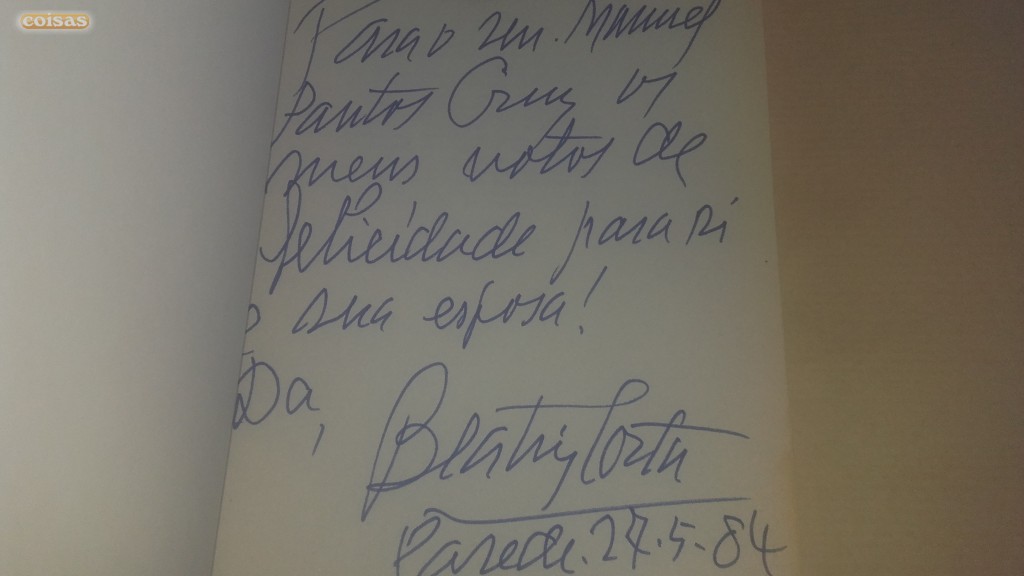 coisas
Para o sen. Manuel
Santos Cruz os
meus votos de
felicidade para si
e sua esposa!
Da,
Beatriz Costa
Parede. 27-5-84